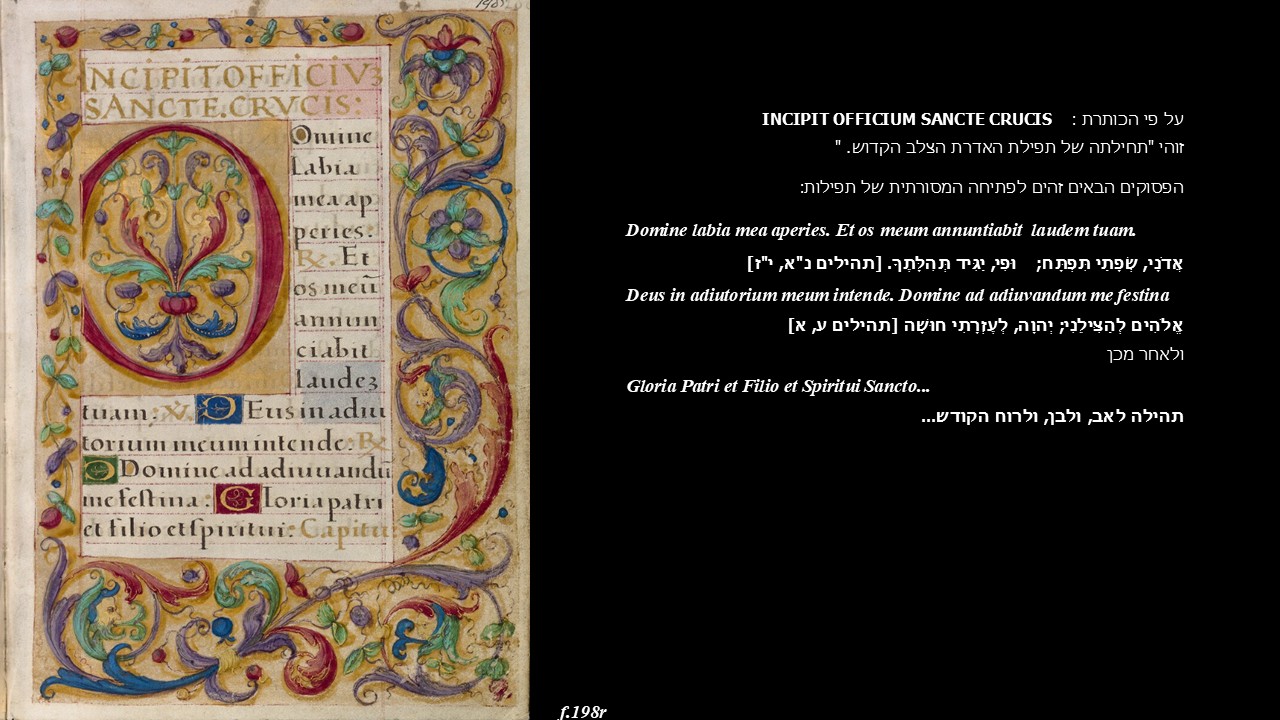 INCIPIT OFFICIVZ
SANCTE.CRVCIS:
Omine
labia
mea ap
peries.
R. Et
os meū
annun
ciabit
laudeʒ
tuam: V. D Eus in adiu
torium meum intende: R
D Domine ad adiuuandū
me festina: G loria patri
et filio et spiritui: Capitu:
על פי הכותרת : INCIPIT OFFICIUM SANCTE CRUCIS
זוהי "תחילתה של תפילת האדרת הצלב הקדוש. "
הפסוקים הבאים זהים לפתיחה המסורתית של תפילות:
Domine labia mea aperies. Et os meum annuntiabit laudem tuam.
אֲדֹנָי, שְׂפָתַי תִּפְתָּח; וּפִי, יַגִּיד תְּהִלָּתֶךָ. [תהילים נ"א, י"ז]
Deus in adiutorium meum intende. Domine ad adiuvandum me festina
אֱלֹהִים לְהַצִּילֵנִי; יְהוָה, לְעֶזְרָתִי חוּשָׁה [תהילים ע, א]
ולאחר מכן
Gloria Patri et Filio et Spiritui Sancto...
תהילה לאב, ולבן, ולרוח הקודש...
f.198r